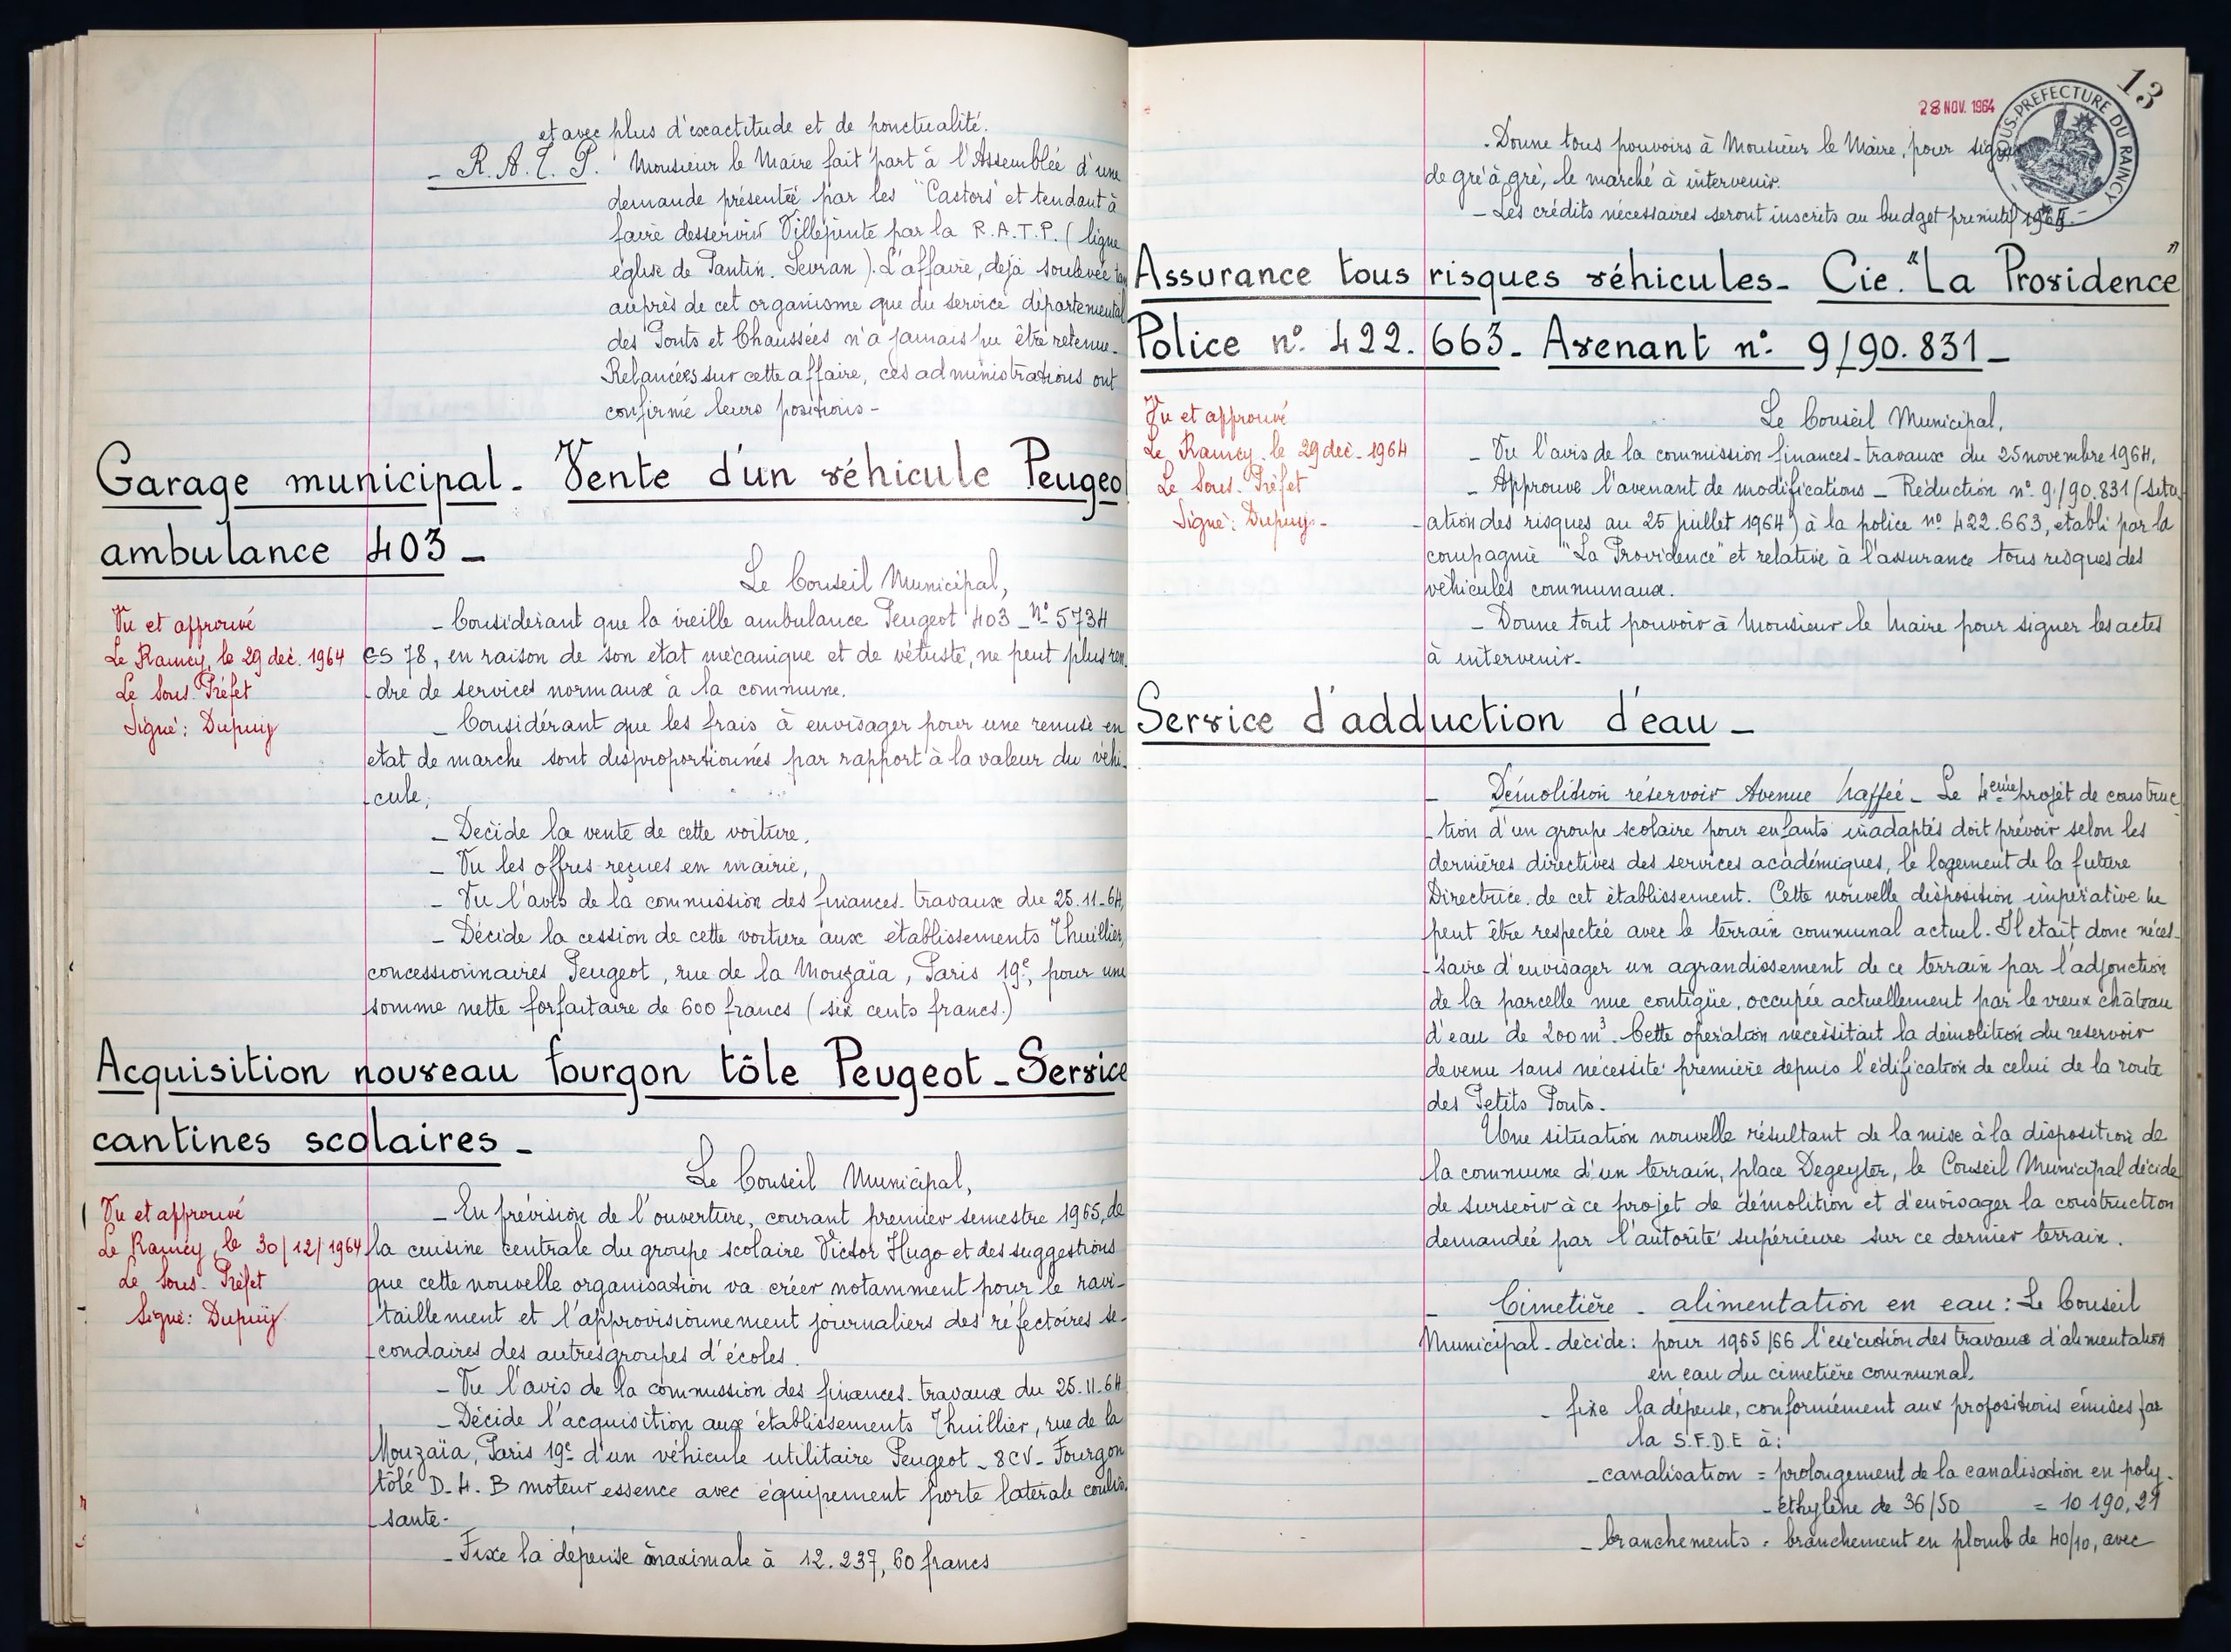 et avec plus d'exactitude et de ponctualité.
- R.A.T.P. Monsieur le Maire fait part à l'Assemblée d'une
demande présentée par les "Castors" et tendant à
faire desservir Villepinte par la R.A.T.P. (ligne
église de Pantin. Sevran). L'affaire, déjà soulevée tan
auprès de cet organisme que du service départemental
des Ponts et Chaussées n'a jamais pu être retenue.
Relancées sur cette affaire, ces administrations ont
confirmé leurs positions -
Garage municipal - Vente d'un véhicule Peugeo
ambulance 403 -
Le Conseil Municipal,
Vu et approuvé
Le Raincy, le 29 déc. 1964
Le Sous-Préfet
Signé: Dupuy
- Considérant que la vieille ambulance Peugeot 403 - N° 5734
ES 78, en raison de son état mécanique et de vétusté, ne peut plus ren-
-dre de services normaux à la commune.
- Considérant que les frais à envisager pour une remise en
état de marche sont disproportionnés par rapport à la valeur du véhi-
-cule,
- Décide la vente de cette voiture.
- Vu les offres reçues en mairie,
- Vu l'avis de la commission des finances-travaux du 25.11.64,
- Décide la cession de cette voiture aux établissements Thuillier,
concessionnaires Peugeot, rue de la Mouzaïa, Paris 19e, pour une
somme nette forfaitaire de 600 francs (six cents francs.)
Acquisition nouveau fourgon tôle Peugeot - Service
cantines scolaires -
Le Conseil Municipal,
Vu et approuvé
Le Raincy, le 30/12/1964
Le Sous-Préfet
Signé: Dupuy
- En prévision de l'ouverture, courant premier semestre 1965, de
la cuisine centrale du groupe scolaire Victor Hugo et des suggestions
que cette nouvelle organisation va créer notamment pour le ravi-
-taillement et l'approvisionnement journaliers des réfectoires se-
-condaires des autres groupes d'écoles.
- Vu l'avis de la commission des finances-travaux du 25.11.64
- Décide l'acquisition aux établissements Thuillier, rue de la
Mouzaïa, Paris 19e d'un véhicule utilitaire Peugeot - 8CV - Fourgon
tôlé D.4.B moteur essence avec équipement porte latérale coulis-
-sante.
- Fixe la dépense maximale à 12.237,60 francs
13
28 NOV. 1964
SOUS-PREFECTURE DU RAINCY
- Donne tous pouvoirs à Monsieur le Maire, pour signer
de gré à gré, le marché à intervenir.
- Les crédits nécessaires seront inscrits au budget primitif 1965.-
Assurance tous risques véhicules - Cie. "La Providence"
Police n° 422.663 - Avenant n° 9/90.831 -
Le Conseil Municipal,
Vu et approuvé
Le Raincy, le 29 déc. 1964
Le Sous-Préfet
Signé: Dupuy -
- Vu l'avis de la commission finances-travaux du 25 novembre 1964,
- Approuve l'avenant de modifications - Réduction n° 9/90.831 (situ-
-ation des risques au 25 juillet 1964) à la police n° 422.663, établi par la
compagnie "La Providence" et relative à l'assurance tous risques des
véhicules communaux.
- Donne tout pouvoir à Monsieur le Maire pour signer les actes
à intervenir.
Service d'adduction d'eau -
- Démolition réservoir Avenue Chaffée - Le 4ème projet de construc
-tion d'un groupe scolaire pour enfants inadaptés doit prévoir selon les
dernières directives des services académiques, le logement de la future
Directrice de cet établissement. Cette nouvelle disposition impérative ne
peut être respectée avec le terrain communal actuel. Il était donc néces-
-saire d'envisager un agrandissement de ce terrain par l'adjonction
de la parcelle nue contigüe, occupée actuellement par le vieux château
d'eau de 200 m³. Cette opération nécessitait la démolition du réservoir
devenu sans nécessité première depuis l'édification de celui de la route
des Petits Ponts.
Une situation nouvelle résultant de la mise à la disposition de
la commune d'un terrain, place Degeyter, le Conseil Municipal décide
de surseoir à ce projet de démolition et d'envisager la construction
demandée par l'autorité supérieure sur ce dernier terrain.
- Cimetière - alimentation en eau : Le Conseil
Municipal - décide : pour 1965/66 l'exécution des travaux d'alimentation
en eau du cimetière communal.
- fixe la dépense, conformément aux propositions émises par
la S.F.D.E à :
- canalisation = prolongement de la canalisation en poly-
-éthylène de 36/50 = 10 190,21
- branchements = branchement en plomb de 40/10, avec